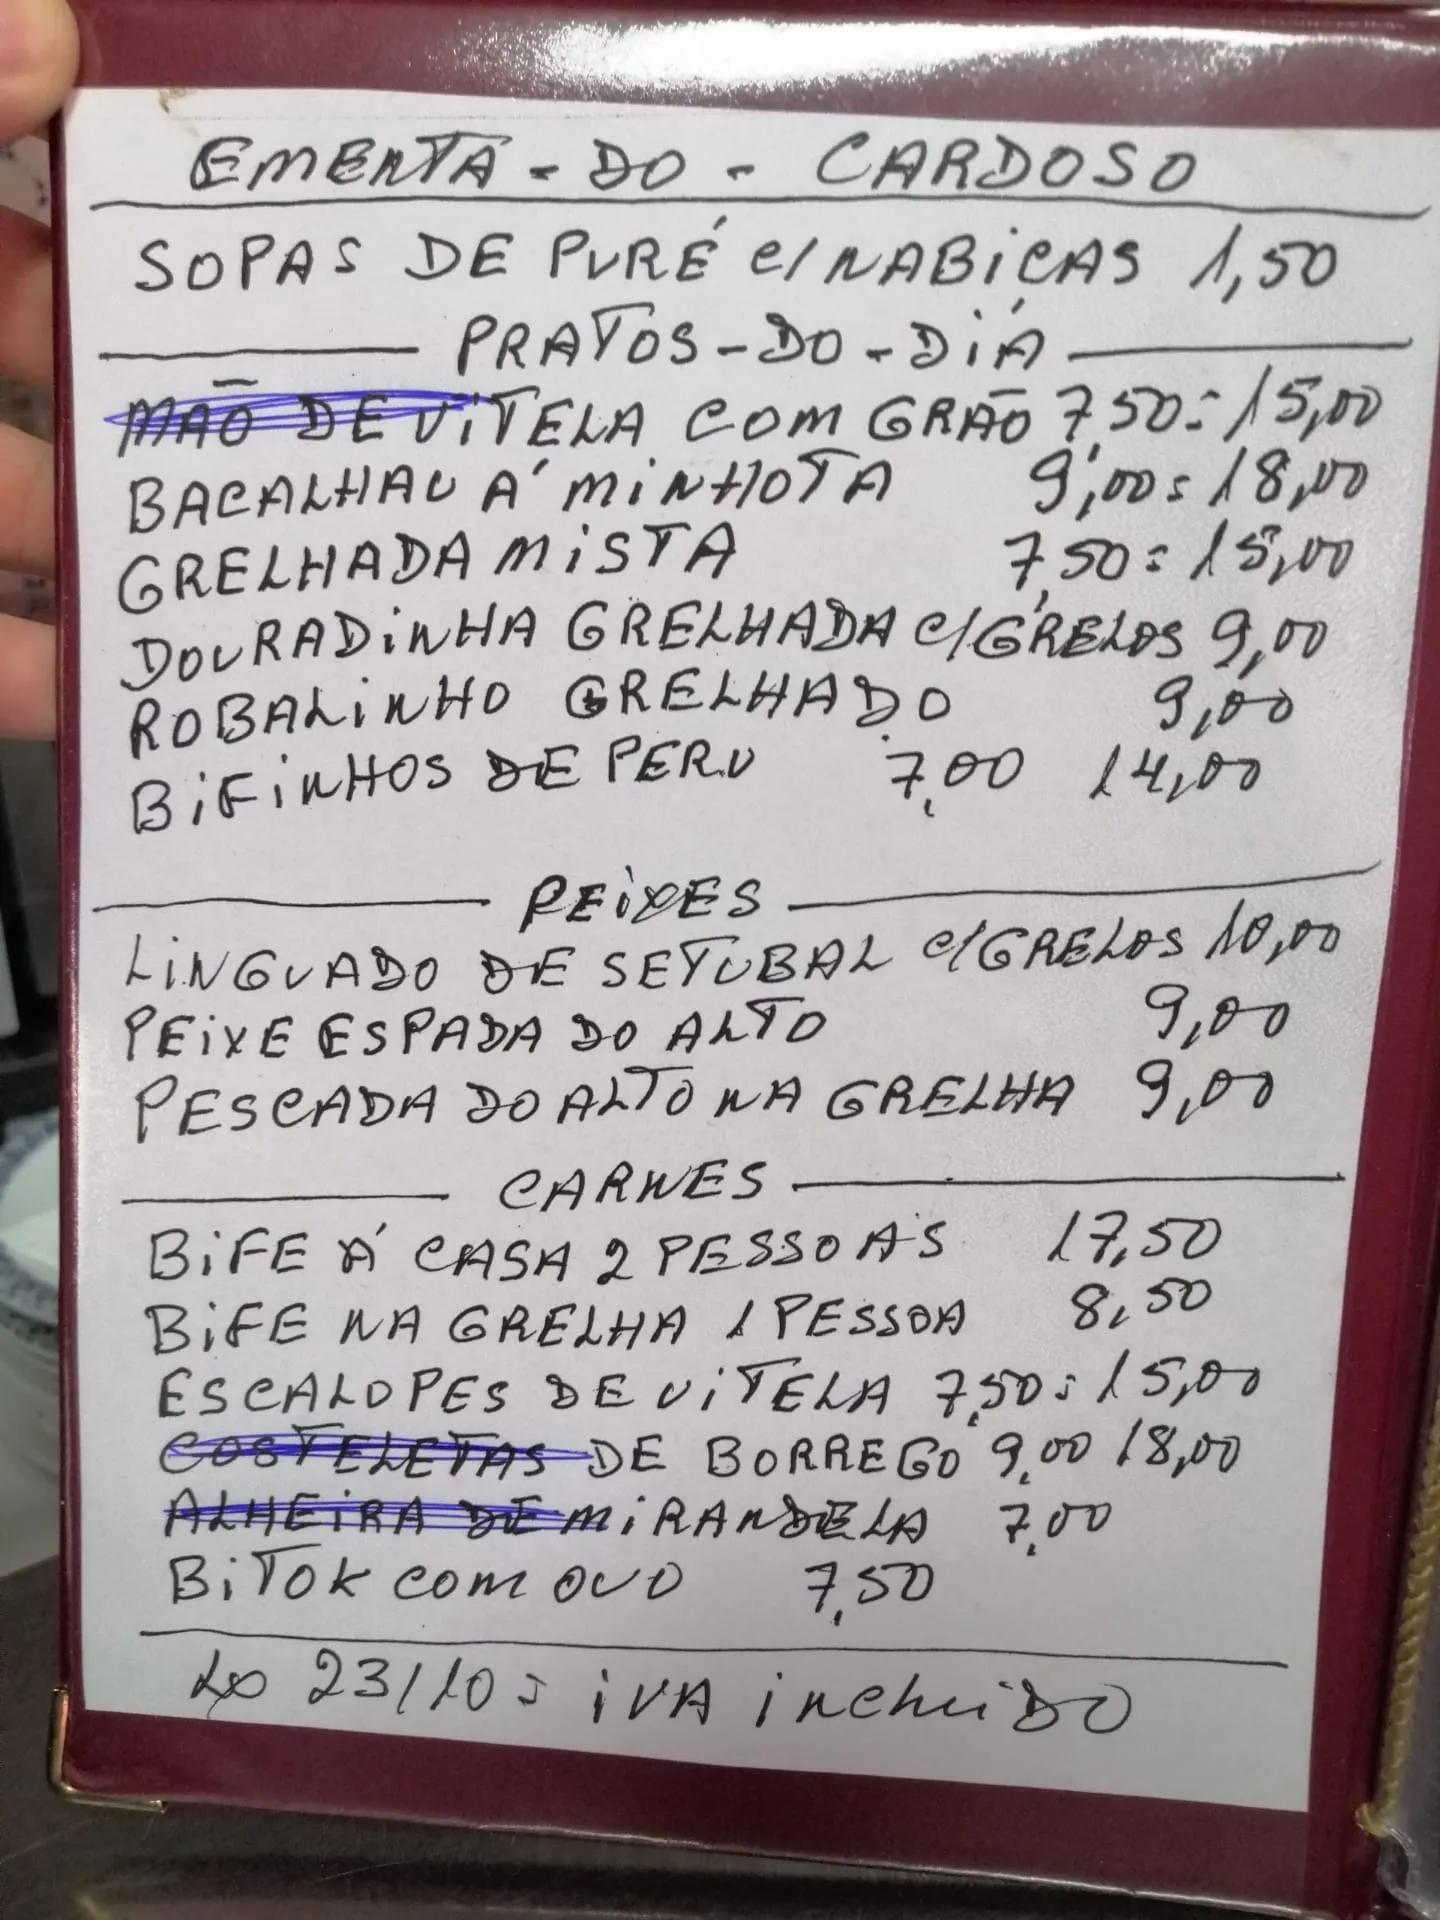 EMENTA - DO - CARDOSO
SOPAS DE PURÉ C/NABIÇAS 1,50
PRATOS-DO-DIÁ
MAÕ DE VITELA COM GRAÕ 7,50 = 15,00
BACALHAU A' MINHOTA 9,00 = 18,00
GRELHADA MISTA 7,50 = 15,00
DOURADINHA GRELHADA C/GRELOS 9,00
ROBALINHO GRELHADO 9,00
BIFINHOS DE PERU 7,00 14,00
PEIXES
LINGUADO DE SETUBAL C/GRELOS 10,00
PEIXE ESPADA DO ALTO 9,00
PESCADA DO ALTO NA GRELHA 9,00
CARNES
BIFE Á CASA 2 PESSOAS 17,50
BIFE NA GRELHA 1 PESSOA 8,50
ESCALOPES DE VITELA 7,50 = 15,00
COSTELETAS DE BORREGO 9,00 18,00
ALHEIRA DE MIRANDELA 7,00
BITOK COM OVO 7,50
23/10 = IVA incluiDO